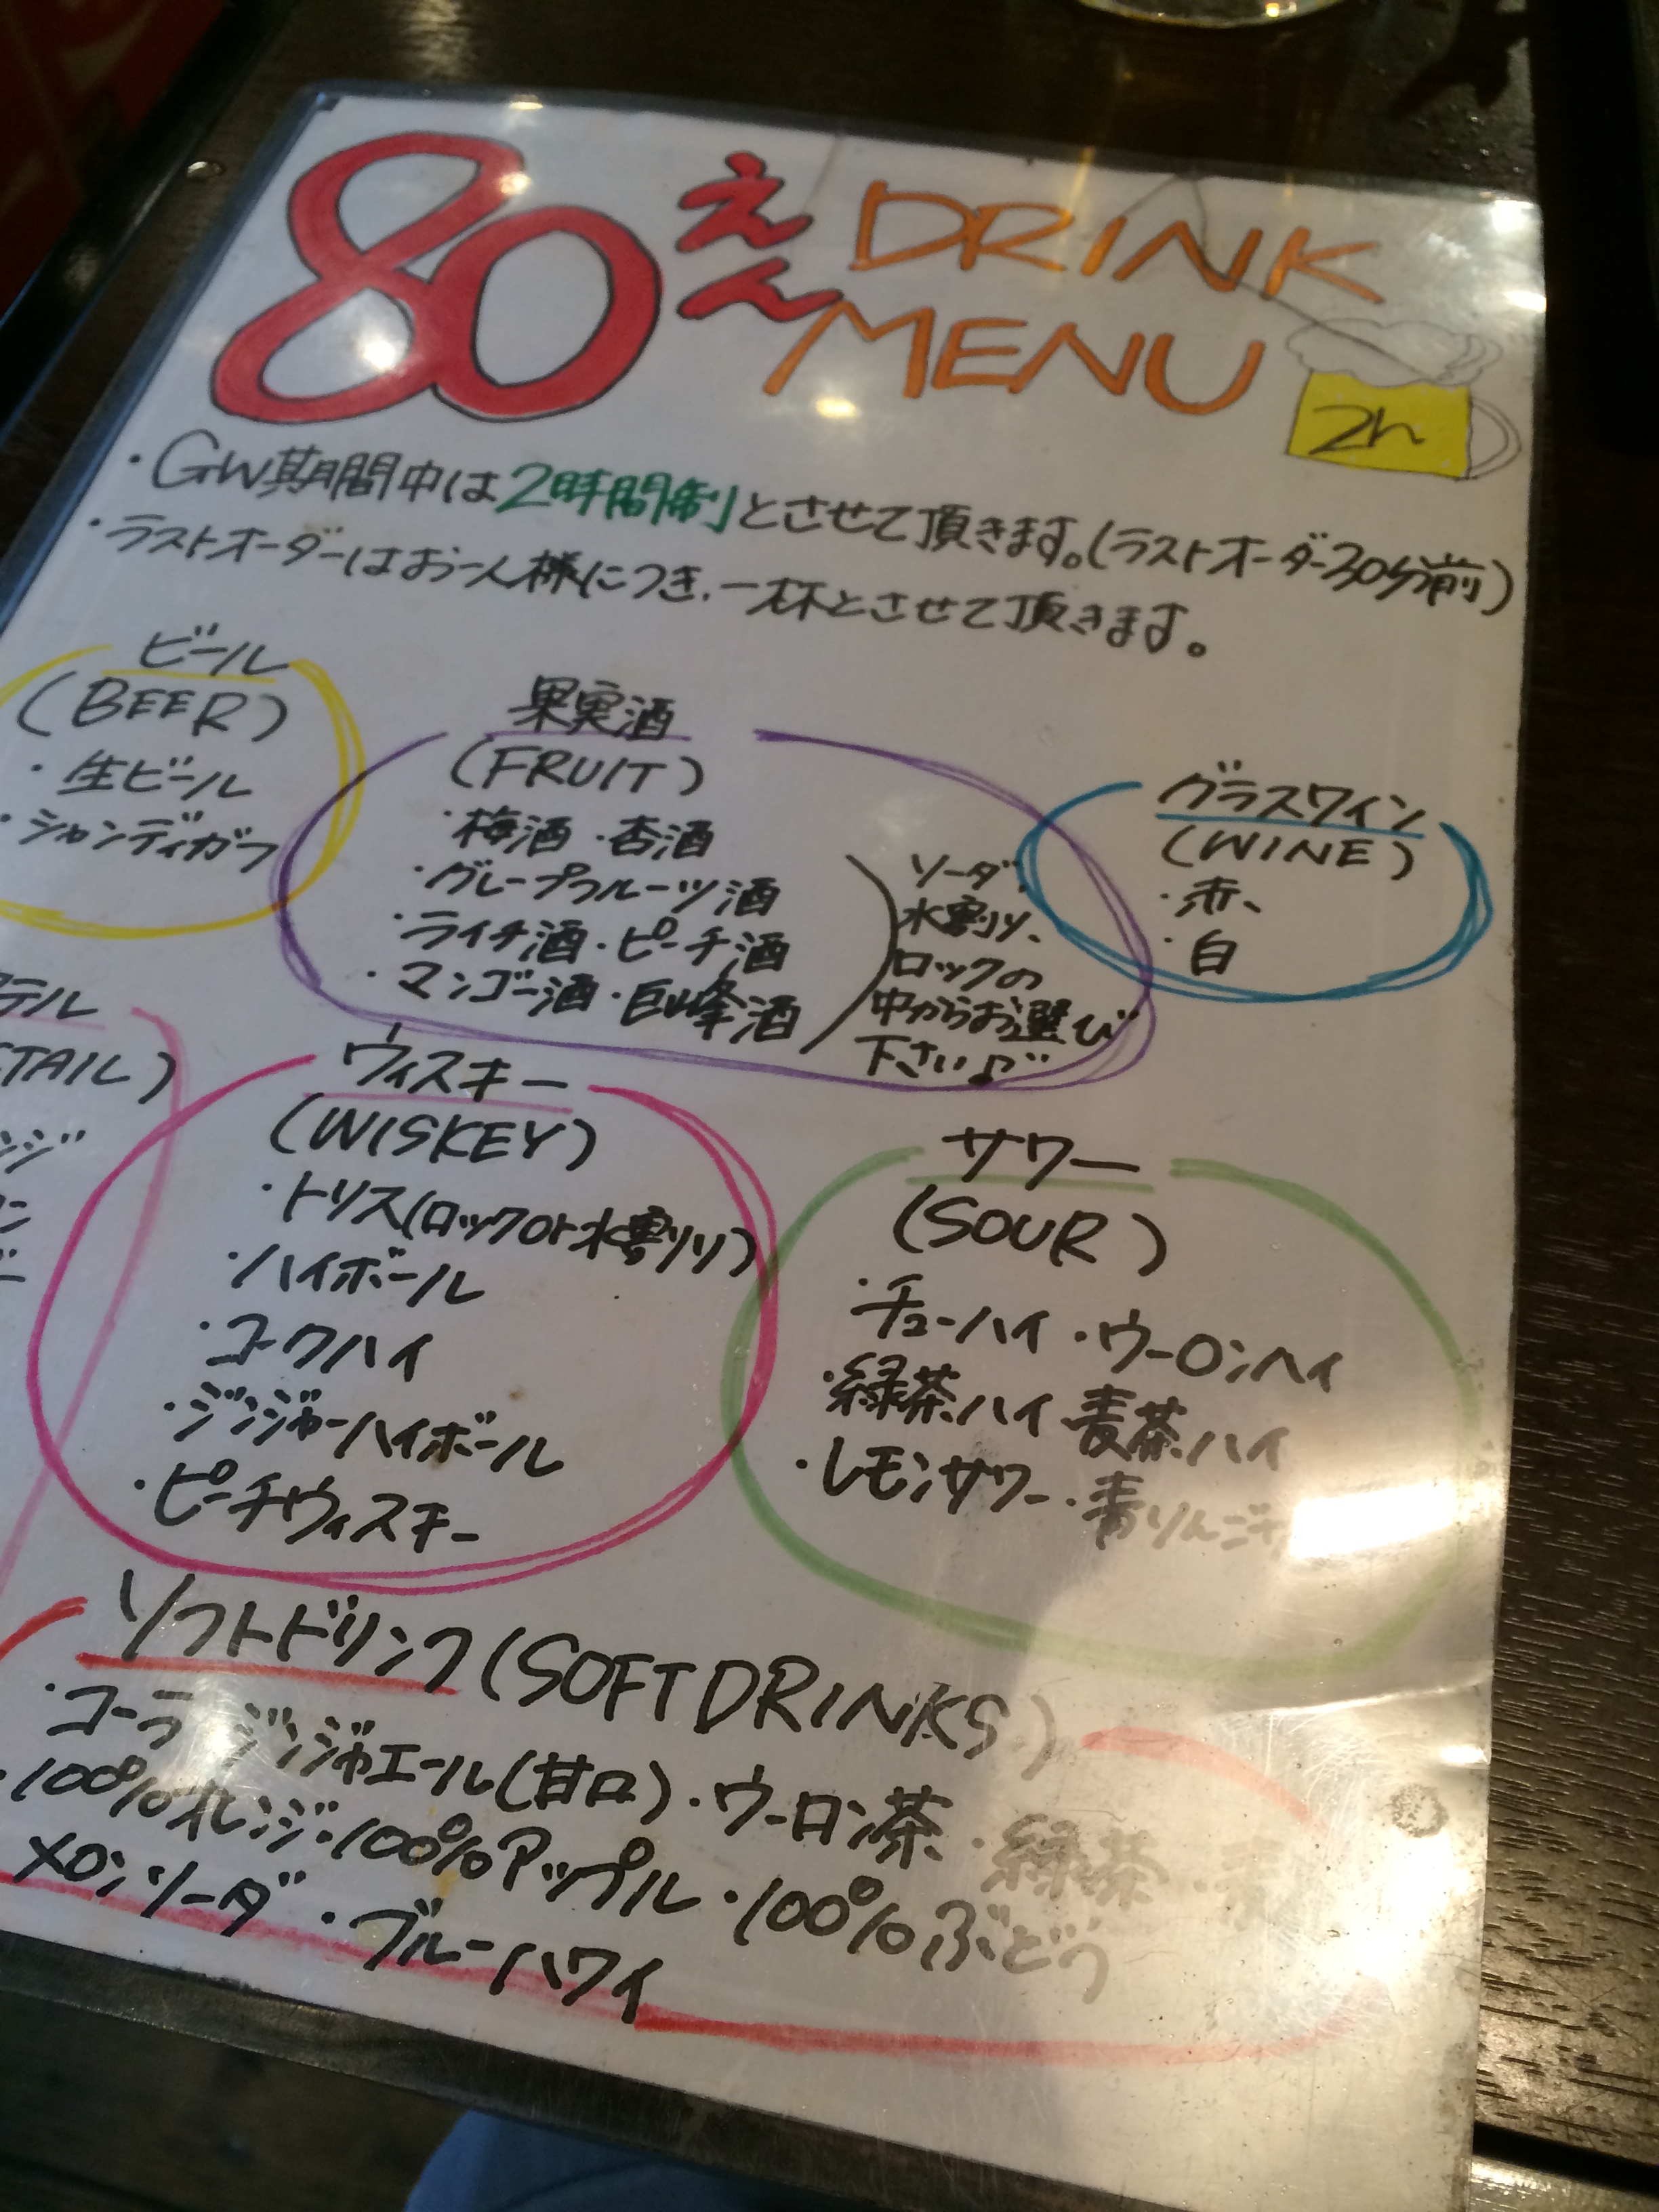 80えん DRINK
MENU
2h
・GW期間中は2時間制とさせて頂きます。(ラストオーダー30分前)
・ラストオーダーはお一人様につき、一杯とさせて頂きます。
ビール
(BEER)
・生ビール
・シャンディガフ
果実酒
(FRUIT)
・梅酒・杏酒
・グレープフルーツ酒
・ライチ酒・ピーチ酒
・マンゴー酒・巨峰酒
ソーダ、
水割り、
ロックの
中からお選び
下さい♪
グラスワイン
(WINE)
・赤、
・白
テル
TAIL)
ウィスキー
(WISKEY)
・トリス(ロックor水割り)
・ハイボール
・コークハイ
・ジンジャーハイボール
・ピーチウィスキー
サワー
(SOUR)
・チューハイ・ウーロンハイ
・緑茶ハイ 麦茶ハイ
・レモンサワー・青りんご
ソフトドリンク(SOFT DRINKS)
・コーラ ジンジャエール(甘口)・ウーロン茶・緑茶・
・100%オレンジ・100%アップル・100%ぶどう
メロンソーダ・ブルーハワイ